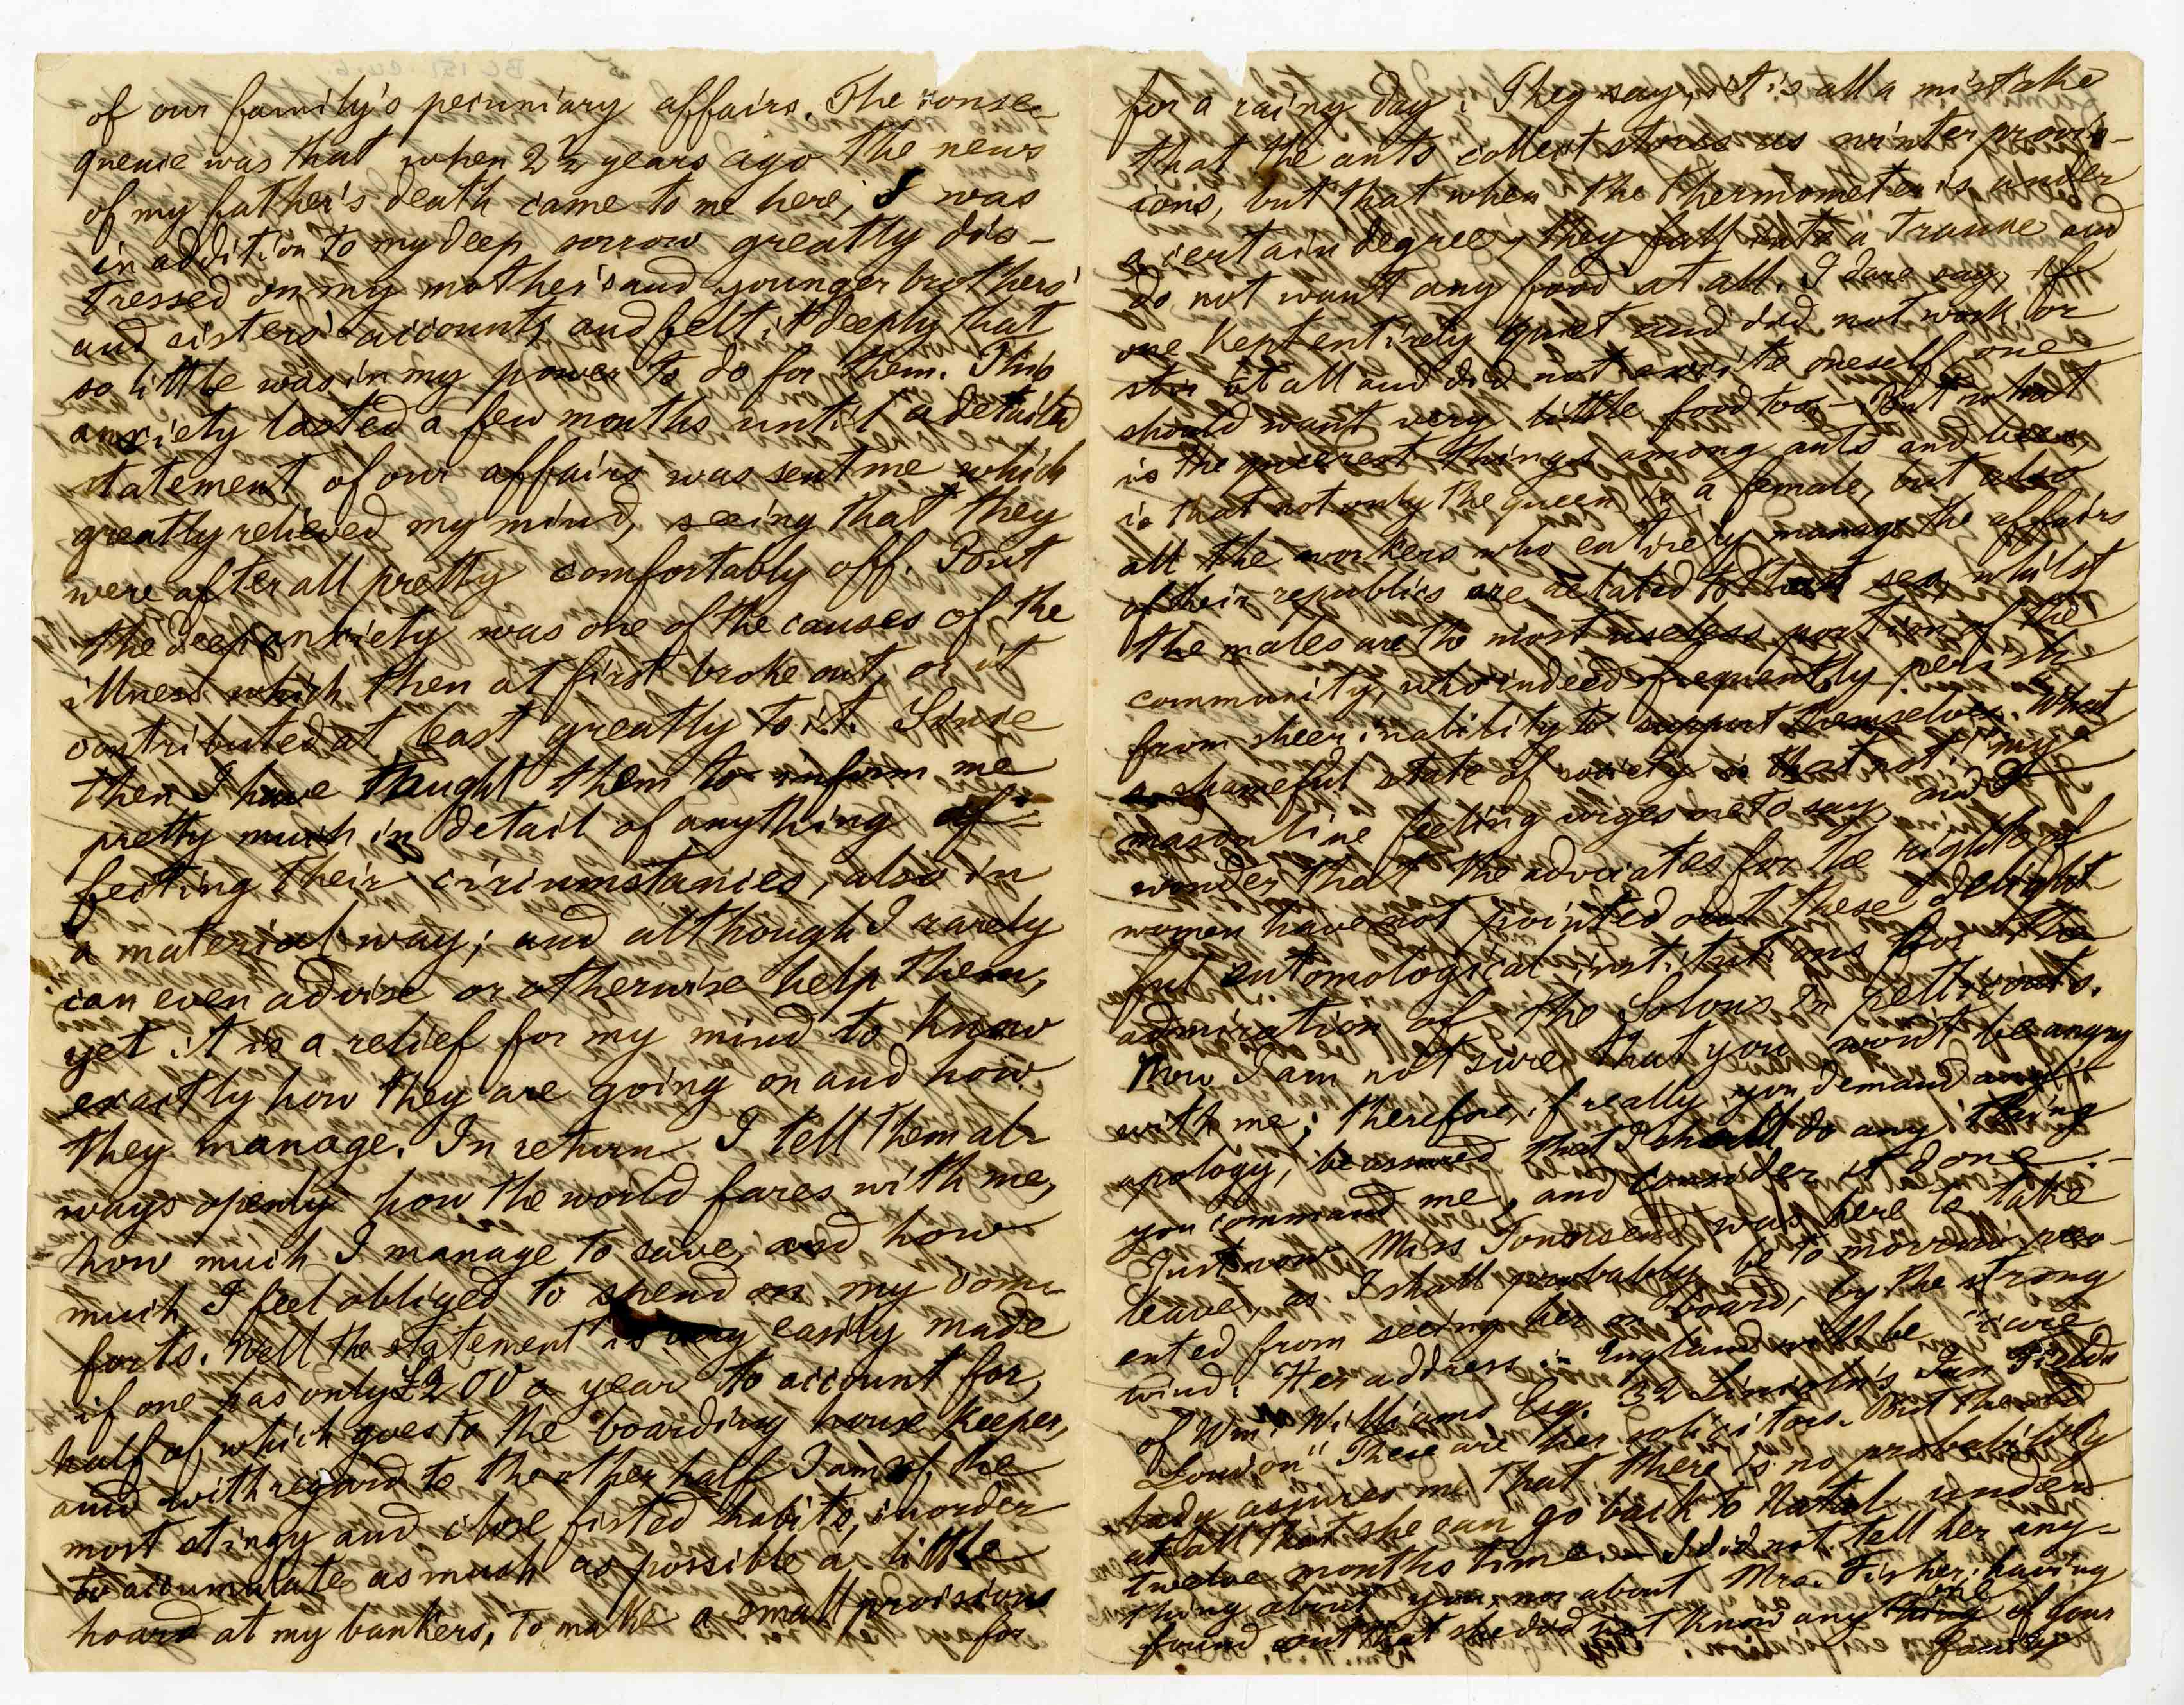 of our family's pecuniary affairs. The conse-
quence was that when 2½ years ago the news
of my father's death came to me here, I was
in addition to my deep sorrow greatly dis-
tressed on my mother's and younger brothers'
and sisters' accounts, and felt it deeply that
so little was in my power to do for them. This
anxiety lasted a few months until a detailed
statement of our affairs was sent me which
greatly relieved my mind, seeing that they
were after all pretty comfortably off. But
the deep anxiety was one of the causes of the
illness which then at first broke out, or it
contributed at least greatly to it. Since
then I have taught them to inform me
pretty much in detail of anything af-
fecting their circumstances, also in
a material way; and although I rarely
can even advise or otherwise help them,
yet it is a relief for my mind to know
exactly how they are going on and how
they manage. In return I tell them al-
ways openly how the world fares with me,
how much I manage to save, and how
much I feel obliged to spend on my com-
forts. Well the statement is very easily made
if one has only £200 a year to account for,
half of which goes to the boarding house keeper,
and with regard to the other half I am of the
most stingy and close fisted habits, in order
to accumulate as much as possible a little
hoard at my bankers, to make a small provisions
for
for a rainy day. They say, it is all a mistake
that the ants collect stores as winter provis-
ions, but that when the thermometer is under
a certain degree, they fall into a trance and
do not want any food at all. I dare say, if
one kept entirely quiet and did not work or
stir at all and did not excite oneself, one
should want very little food too. - But what
is the queerest things among ants and bees,
is that not only the queen is a female, but also
all the workers who entirely manage the affairs
of their republics are related to that sex, whilst
the males are the most useless portion of the
community, who indeed frequently perish
from sheer inability to support themselves. What
a shameful state of society is that not! my
masculine feeling urges me to say, and I
wonder that the advocates for the rights of
women have not pointed out these delight-
ful entomological institutions for the
admiration of the Solons in petticoats.
Now I am not sure that you won't be angry
with me; therefore, if really you demand any
apology, be assured that I should do any thing
you command me, and consider it done. -
Just now Miss Townsend was here to take
leave, as I shall probably be to morrow prev-
ented from seeing her on board, by the strong
wind. Her address in England will be "care
of Wm. Williams Esq. 32 Lincoln's Inn Fields
London" These are her solicitors. But the
lady assures me that there is no probability
at all that she can go back to Natal under
twelve months time. - I did not tell her any-
thing about you, nor about Mrs. Fisher, having
found out that she did not know any one of your
family